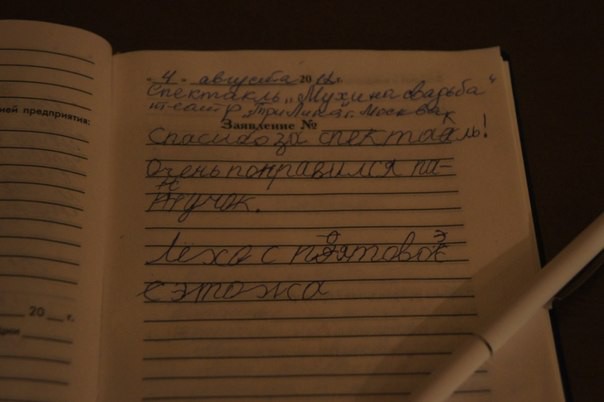 ней предприятия:
20 г.
"4" августа 20 12г.
Спектакль "Мухина свадьба"
театр "ТриЛика" г. Москва
Заявление №
Спасибо за спектакль!
Очень понравился па-
учок.
Леха с пятово
этажа